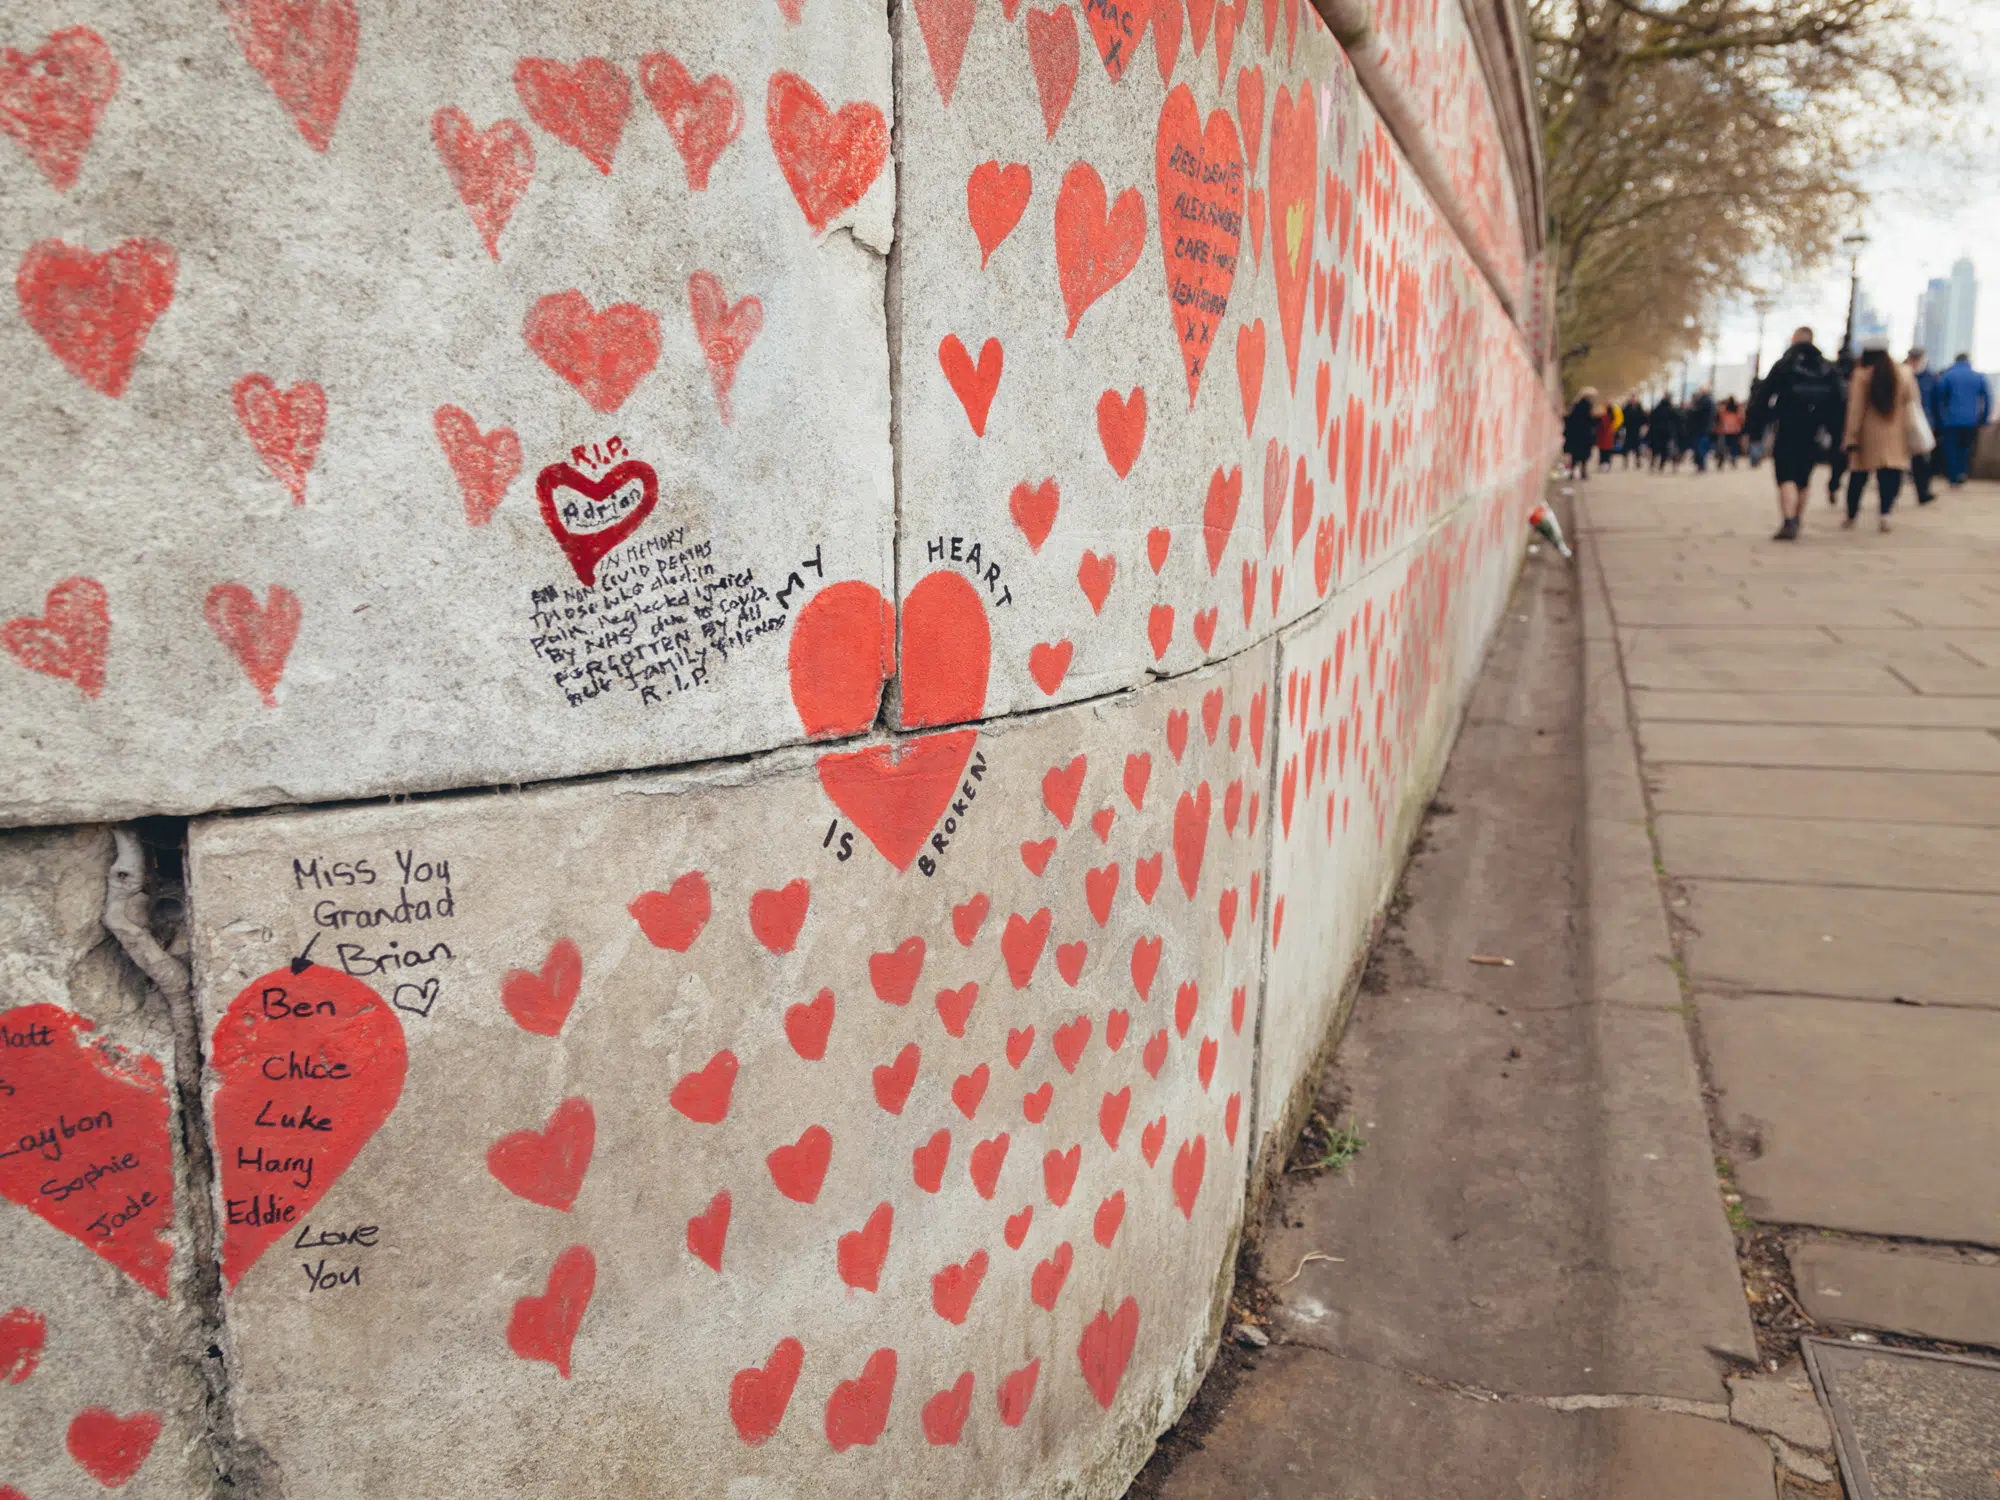 MAC
X
RESIDENTS
ALEXANDER
CARE HOME
LEWISHAM
X X
X
R.I.P.
Adrian
IN MEMORY
NON COVID DEATHS
Those who died in
pain, neglected ignored
BY NHS due to Covid
FORGOTTEN BY All
but FAMILY FRIENDS
R.I.P.
MY
HEART
IS
BROKEN
Miss You
Grandad
Brian
Ben
Chloe
Luke
Harry
Eddie
Love
You
Matt
s
Layton
Sophie
Jade